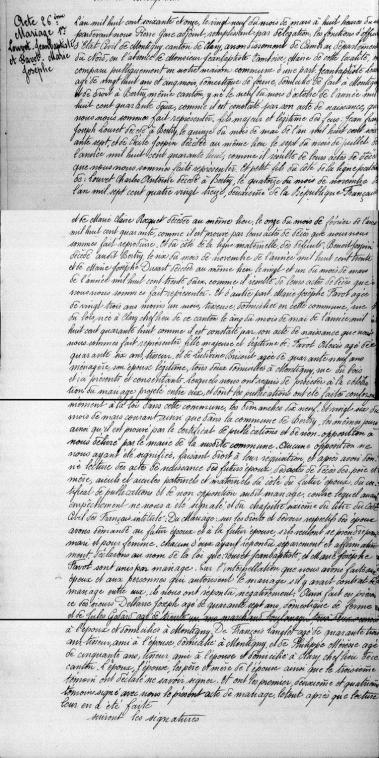 Acte 26ème
Mariage
Louvet Jeanbaptiste
et Pavot Marie
Josephe
L'an mil huit cent soixante et onze, le vingt neuf du mois de mars à huit heures du
pardevant nous Pierre adjoint, remplissant par délégation les fonctions d'officier
d'Etat Civil de Montigny, canton de Clary, arrondissement de Cambrai, département
du Nord, en l'absence de Monsieur Jeanbaptiste maire de cette localité,
comparu publiquement en notre maison commune d'une part Jeanbaptiste Louvet
âgé de vingt huit ans et domestique de ferme, domicilié de fait à Montigny
et de droit à Bertry même canton, né le neuf du mois d'octobre de l'année mil
huit cent quarante deux, comme il est constaté par son acte de naissance, que
nous nous sommes fait représenter, fils majeur et légitime des feus Jean
Joseph Louvet décédé à Bertry, le quinze du mois de mai de l'an mil huit cent
ante sept, et de décédée au même lieu le sept du mois de juillet de
l'année mil huit cent quarante comme il résulte de leurs actes de décès
que nous nous sommes faits représenter, et petit fils du côté de la ligne paternelle
de Louvet Charles décédé à Bertry, le quatorze du mois de novembre
l'an mil sept cent quatre vingt treize, deuxième de la République Française
et de Marie Claire décédée au même lieu, le onze du mois de février de l'année
mil huit cent quarante, comme il est prouvé par leurs actes de décès que nous nous
sommes fait représenter, et du côté de la ligne maternelle, des défunts, Benoit
décédé audit Bertry, le dix du mois de novembre de l'année mil huit cent trente
et de Marie Josephe Dusart décédée au même lieu le vingt et un du mois de mars
de l'année mil huit cent trente deux, comme il résulte de leurs actes de décès que
nous nous sommes fait représenter. Et d'autre part Marie Josephe Pavot âgée
de vingt trois ans moins un mois, domiciliée en cette commune, rue
née à Clary chef lieu de ce canton le cinq du mois de mai de l'année mil
huit cent quarante huit comme il est constaté par son acte de naissance que nous
nous sommes fait représenter, fille majeure et légitime de Pavot Alexis âgé de
quarante six ans, tisseur, et de âgée de quarante neuf ans
ménagère, son épouse légitime, tous deux domiciliés à Montigny, rue du bois
et ici présents et consentants, lesquels nous ont requis de procéder à la célébration
du mariage projeté entre eux, et dont les publications ont été faites conformé-
mément à la loi dans cette commune, les dimanches dix neuf et vingt six du
mois de mars courant, ainsi que dans la commune de Bertry, les mêmes jours
ainsi qu'il est prouvé par le certificat de publications et de non opposition à
nous délivré par le maire de la susdite commune. Aucune opposition ne
nous ayant été signifiée, faisant droit à leur réquisition, et après avoir don-
né lecture des actes de naissance des futurs époux, des actes de décès des père et
mère, aieuls et aieules paternels et maternels de côté du futur époux, du cer-
tificat de publications et de non opposition audit mariage, contre lequel aucun
empêchement ne nous a été signalé, et du chapitre sixième du titre du Code
Civil des Français intitulé : Du Mariage, sur les droits et devoirs respectifs des époux
avons demandé au futur époux et à la future épouse, s'ils veulent se prendre pour
mari et pour femme, chacun d'eux ayant répondu séparément et affirmative-
ment déclarons au nom de la loi que Louvet Jeanbaptiste et Marie Josephe
Pavot sont unis par mariage. Sur l'interpellation que nous avons faite aux
époux et aux personnes qui autorisent le mariage s'il y avait contrat de
mariage entre eux, ils nous ont répondu négativement. Ainsi fait en présen-
ce des sieurs Joseph âgé de quarante sept ans, domestique de ferme
et de Jules âgé de trente un ans, marchand
à l'époux et domiciliés à Montigny. De François âgé de quarante
ans tisseur, ami à l'épouse domicilié à Montigny, et de Philippe âgé
de cinquante ans, tisseur, ami à l'épouse et domicilié à Clary chef lieu de ce
canton. L'époux, l'épouse, les père et mère de l'épouse ainsi que le troisième
témoin ont déclaré ne savoir signer. Et ont les premier, deuxième et quatrième
témoins signé avec nous le présent acte de mariage, le tout après que lecture
leur en a été faite.
suivent les signatures